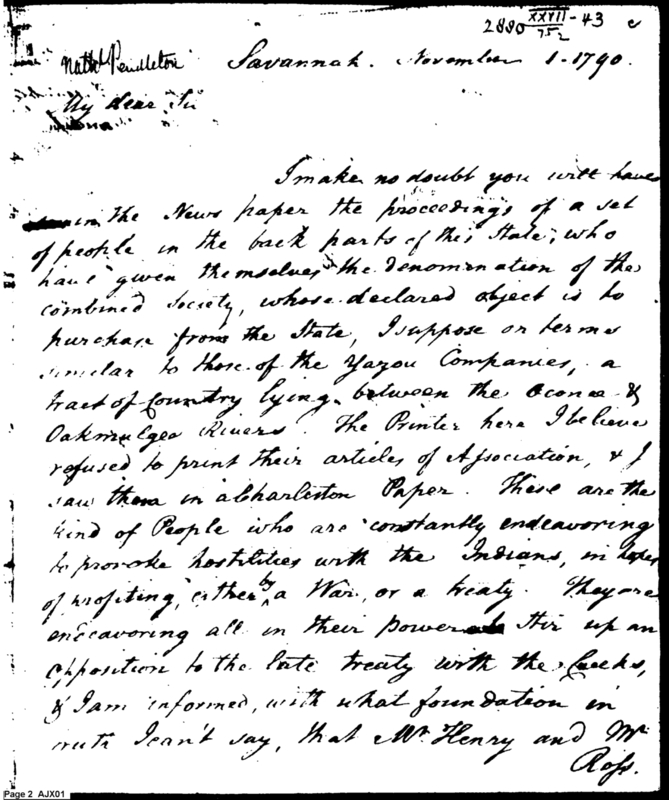 2880 XXVII/752 - 43 c
Nathl Pendleton Savannah. November 1-1790.
My dear Sir
I make no doubt you will have
in the News paper the proceedings of a set
of people in the back parts of this State, who
have given themselves the denomination of the
combined Society, whose declared object is to
purchase from the State, I suppose on terms
similar to those of the Yazou Companies, a
tract of Country lying between the Oconee &
Oakmulgee Rivers. The Printer here I believe
refused to print their articles of Association, & I
saw them in a Charleston Paper. These are the
kind of People who are constantly endeavoring
to provoke hostilities with the Indians, in hopes
of profiting, either by a War, or a treaty. They are
endeavoring all in their power Stir up an
opposition to the late treaty with the Creeks,
& I am informed, with what foundation in
truth I can't say, that Mr. Henry and Mr.
Ross.
Page 2 AJX01